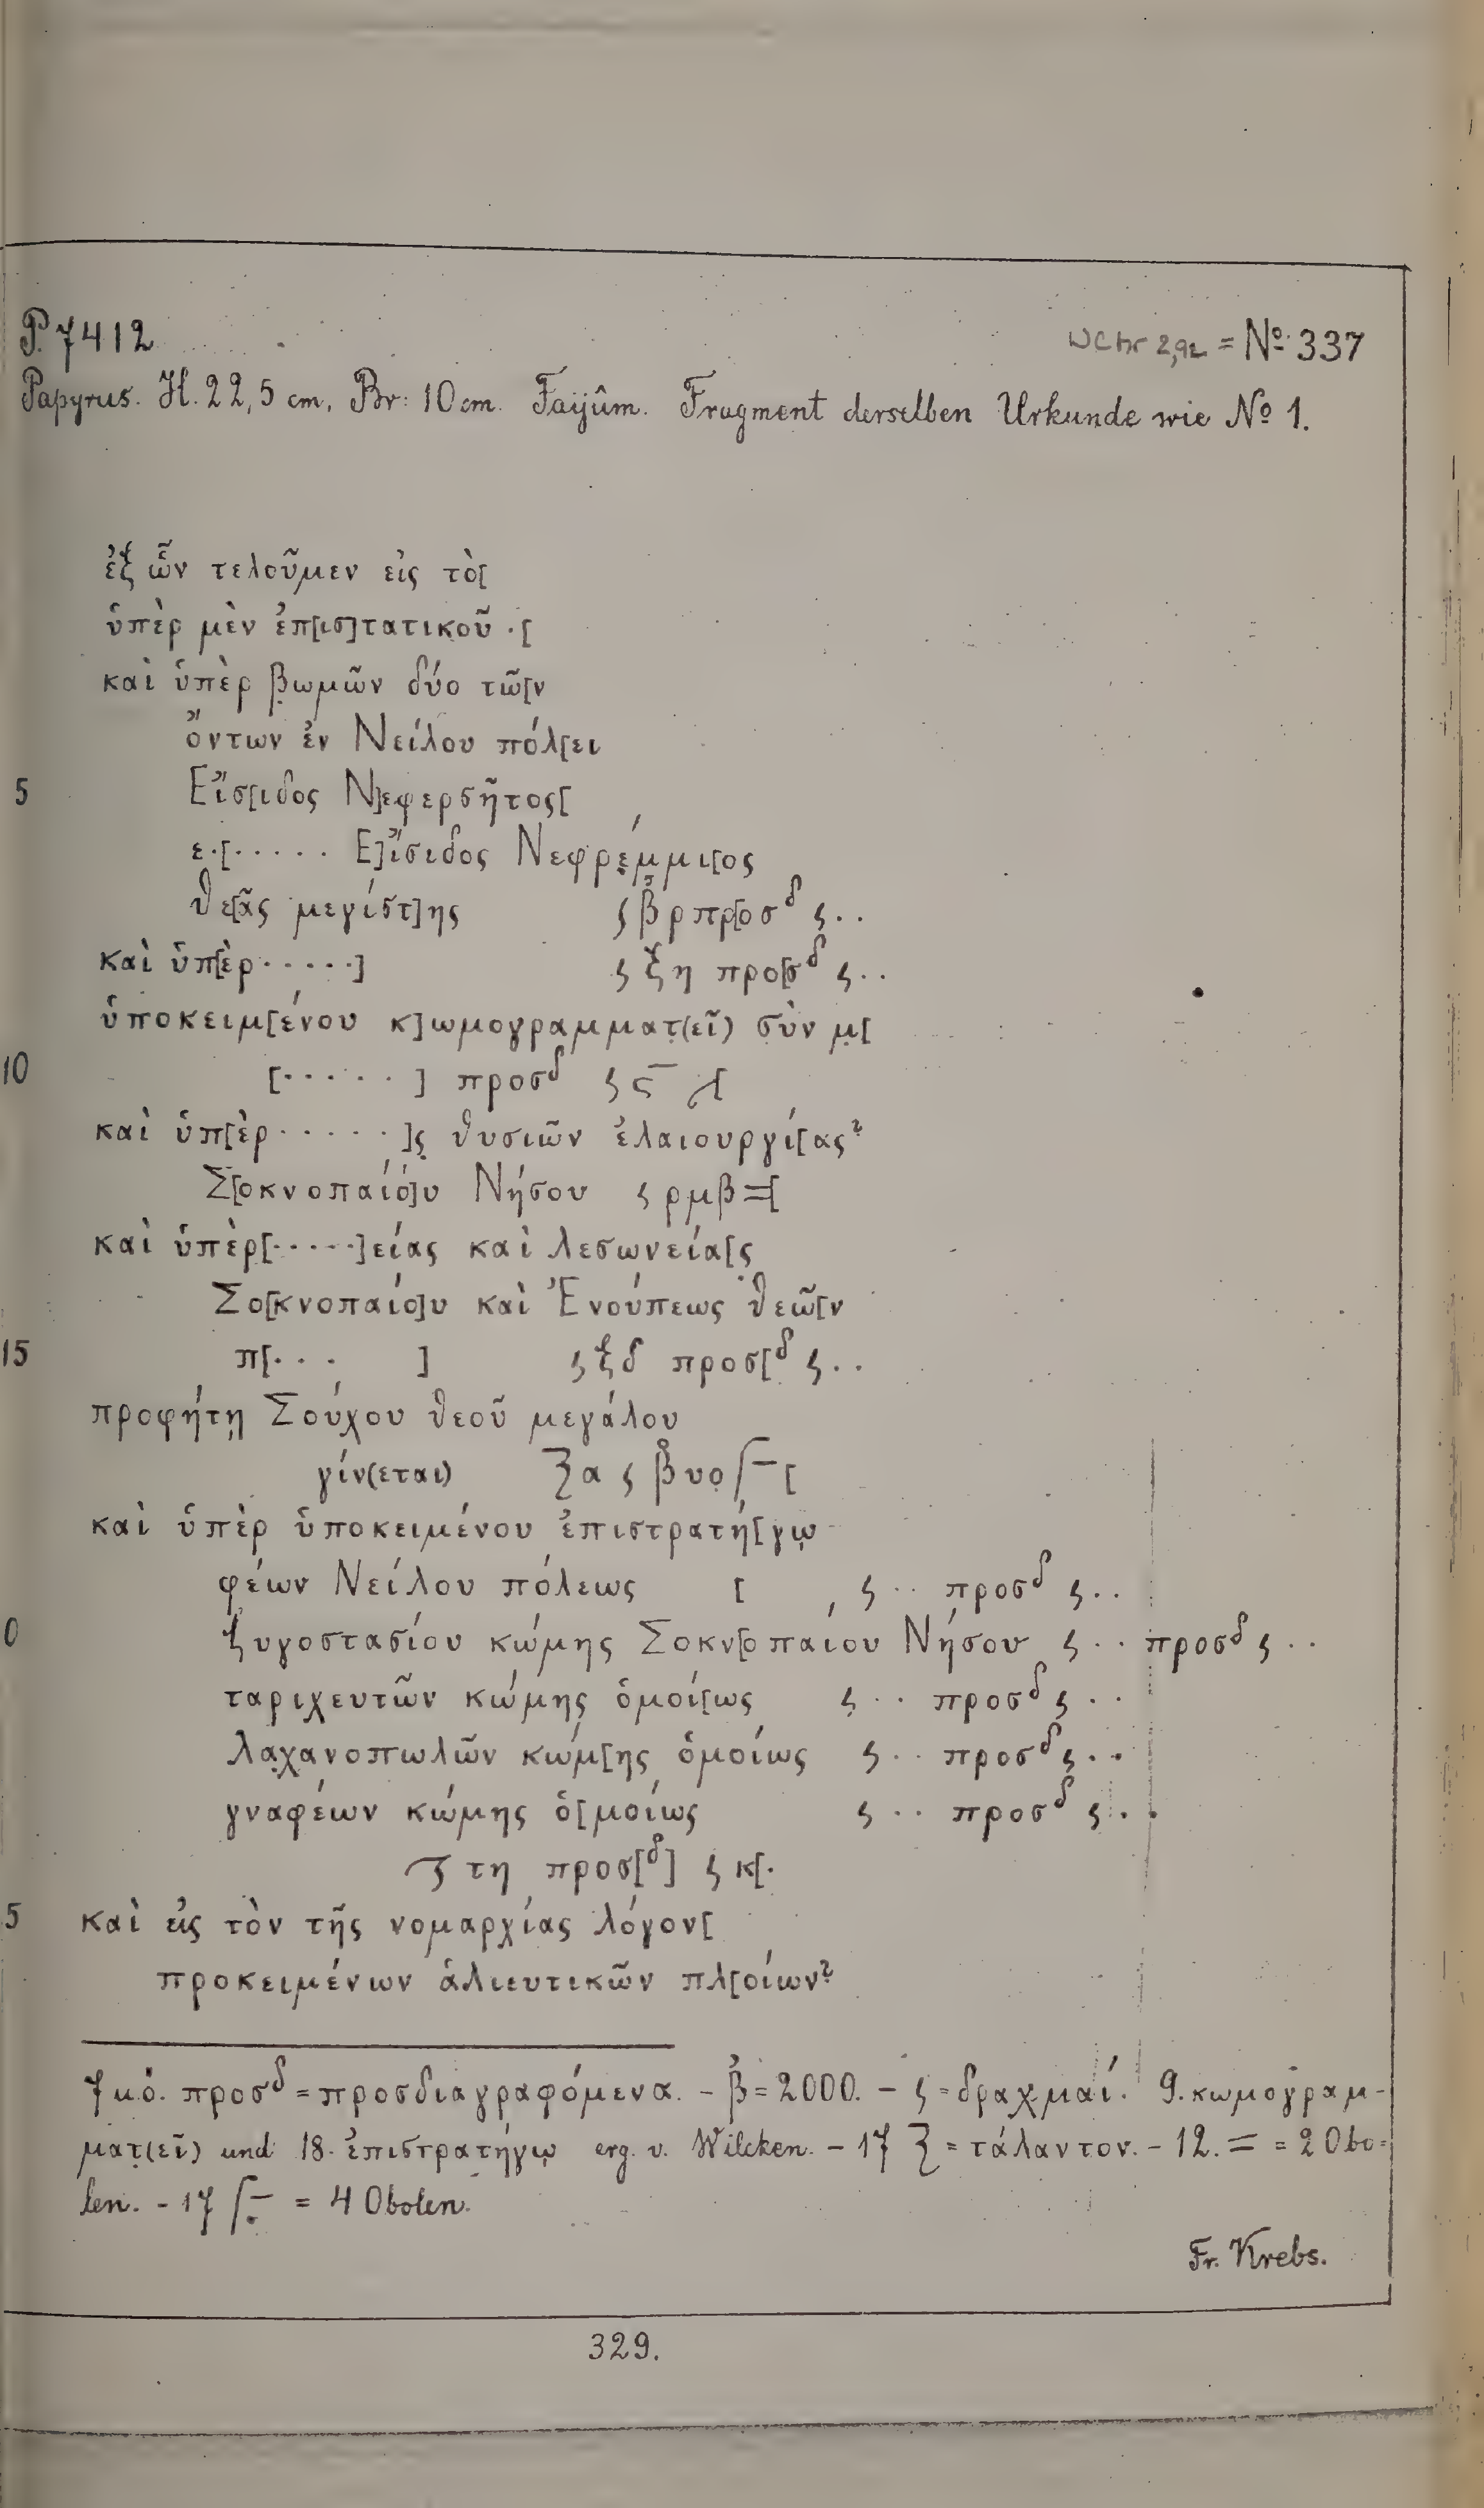 P. 7412
WChr 2,92 = No 337
Papyrus. H. 22,5 cm, Br: 10 cm. Faijûm. Fragment derselben Urkunde wie No 1.
ἐξ ὧν τελοῦμεν εἰς τὸ[
ὑπὲρ μὲν ἐπ[ισ]τατικοῦ ·[
καὶ ὑπὲρ β̣ωμῶν δύο τῶ[ν
ὄντων ἐν Νείλου πόλ[ει
5 Εἴσ[ιδος Ν]εφερσῆτος[
ε·[····· Ε]ἴσιδος Νεφρέ̣μ̣μι[ος
θε[ᾶς μεγίστ]ης ϛ β ρ πρ[οσδ ϛ··
καὶ ὑπ[ὲρ·····] ϛ ξη προ[σδ ϛ··
ὑποκειμ[ένου κ]ωμογραμματ̣(εῖ) σὺν μ̣[
10 [·····] προσδ ϛ ϛ̅ [
καὶ ὑπ[ὲρ·····]ς̣ θυσιῶν ἐλαιουργί[ας?
Σ[οκνοπαίο]υ Νήσου ϛ ρμβ=[
καὶ ὑπὲρ[·····]είας καὶ λεσωνεία[ς
Σο[κνοπαίο]υ καὶ Ἐνούπεως θεῶ[ν
15 π[··· ] ϛ ξδ προσ[δ ϛ··
προφήτῃ Σούχου θεοῦ μεγάλου
γίν(εται) α ϛ β υο̣ ϝ [
καὶ ὑπὲρ ὑποκειμένου ἐπιστρατή[γῳ
φέων Νείλου πόλεως [ ϛ·· προσδ ϛ··
0 ζυγοστασίου κώμης Σοκν[οπαίου Νήσου ϛ·· προσδ ϛ··
ταριχευτῶν κώμης ὁμοί[ως ϛ·· προσδ ϛ··
λα̣χανοπωλῶν κώμ[ης ὁμοίως ϛ·· προσδ ϛ··
γναφέων κώμης ὁ[μοίως ϛ·· προσδ ϛ··
τη προσ[δ] ϛ κ[·
5 καὶ εἰς τὸν τῆς νομαρχίας λόγον[
προκειμένων ἁλιευτικῶν πλ[οίων?
7 u. ö. προσδ = προσδιαγραφόμενα. - β = 2000. - ϛ = δραχμαί. 9. κωμογραμ-
ματ̣(εῖ) und 18. ἐπιστρατήγῳ erg. v. Wilcken. - 17 = τάλαντον. - 12. = = 2 Obo-
len. - 17 ϝ = 4 Obolen.
Fr. Krebs.
329.